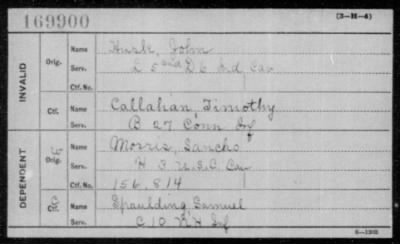 169900 (3-H-4)
INVALID
Orig. Name Husk, John
Serv. L 5 & D 6 Ind Cav
Ctf. No.
Ctf. Name Callahan, Timothy
Serv. B 27 Conn Inf
DEPENDENT
Orig. Name Morris, Sancho
Serv. H 3 U.S.C. Cav
Ctf. No. 156.814
Ctf. Name Spaulding, Samuel
Serv. C 10 NH Inf